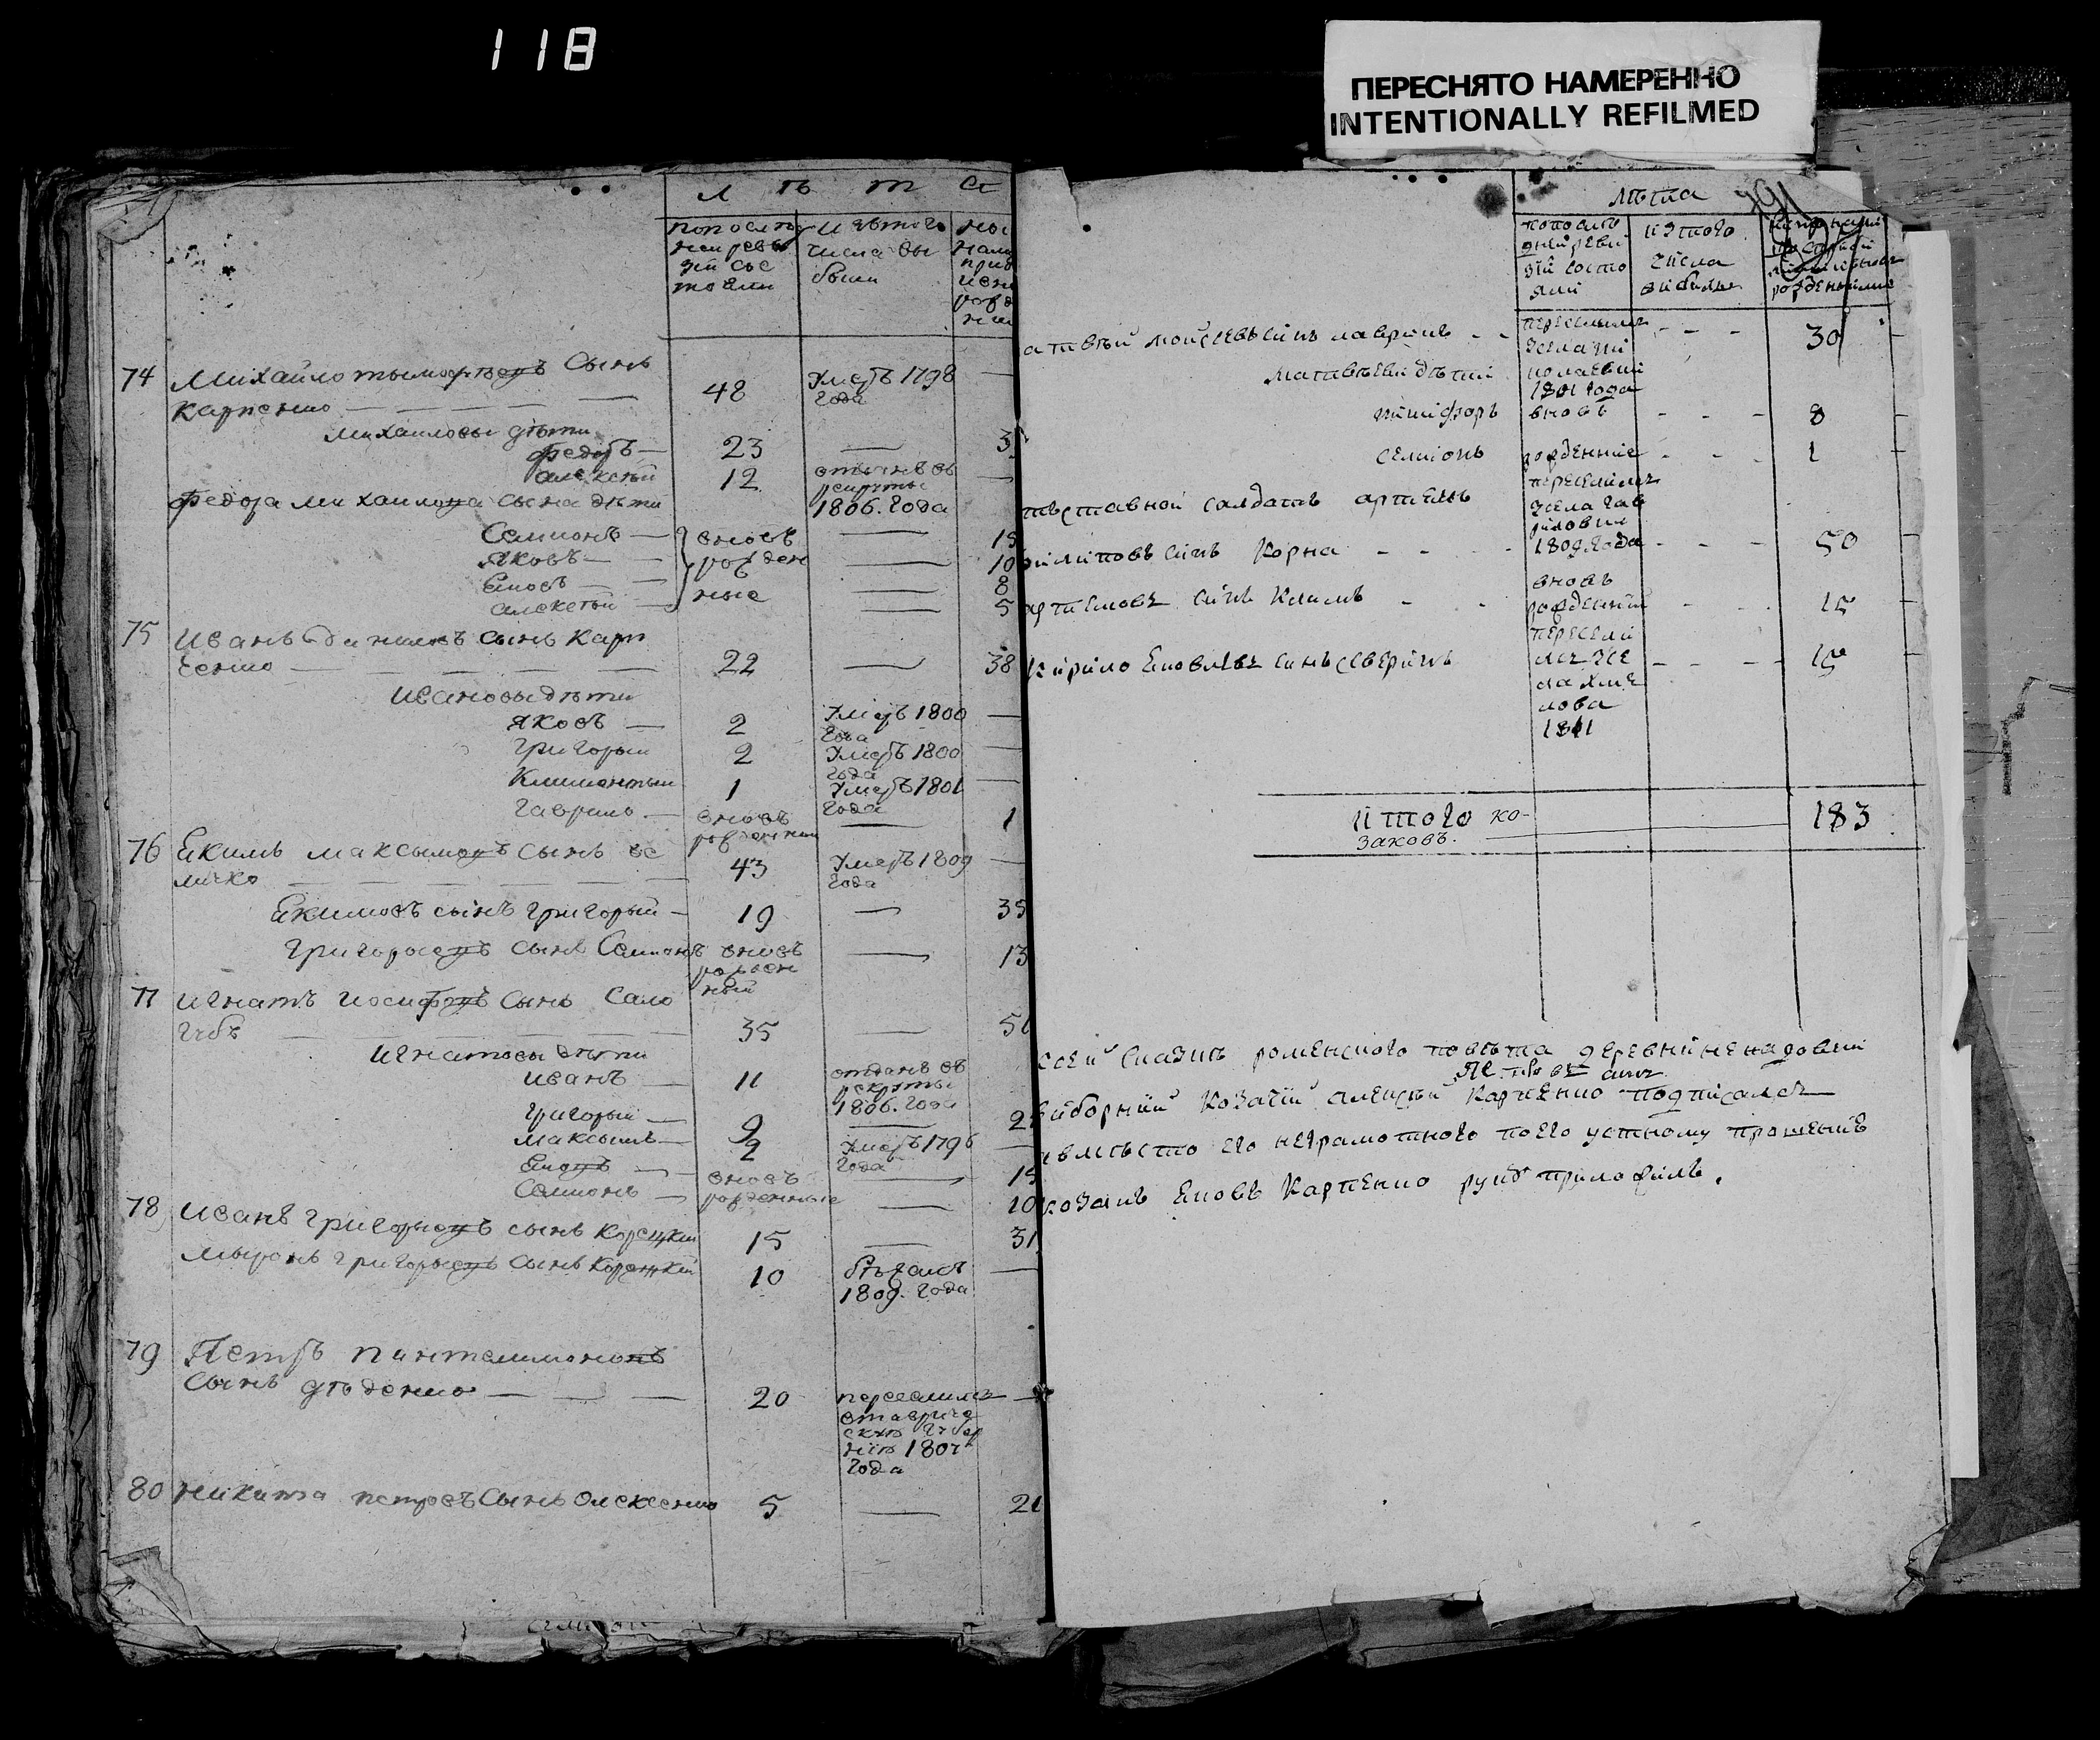 118
ПЕРЕСНЯТО НАМЕРЕННО
INTENTIONALLY REFILMED
Л ѣ т а
попослѣ
ней реви
зіи сос
тояли
изътого
числа вы
были
74 Михайло тымофѣевъ Сынъ 48 Умеръ 1798
Карпенко года
Михаиловы дѣти
Федоръ 23 3
алексѣй 12 отданъ въ
рекруты
1806. года
Федора Михаилова сына дѣти
Семионъ вновь 15
Яковъ рожден 10
Еновъ ные 8
алексѣй 5
75 Иванъ даниловъ сынъ Карп
ченко 22 38
Ивановы дѣти
яковъ 2 Умеръ 1800
года
григорый 2 Умеръ 1800
года
Климентый 1 Умеръ 1801
года
гаврило вновь 1
рожденный
76 Екимъ максымовъ сынъ ве
личко 43 Умеръ 1809
года
Екимовъ сынъ григорый 19 35
григорыевъ сынъ Семионъ вновь 13
рожден
ный
77 Игнатъ иосифовъ Сынъ Сало
губъ 35 51
Игнатовы дѣти
иванъ 11 отданъ въ
рекруты
1806. года
григорый 9 2
максымъ 2 Умеръ 1796
года
вновь 15
Семионъ рожденные 10
78 Иванъ григорыевъ сынъ Корецкій 15 31
Мыронъ григорыевъ сынъ Корецкій 10 бѣжалъ
1809. года
79 Петръ пантелимоновъ
Сынъ дѣденко 20 переселился
втавриче
скую губер
нію 1807
года
80 Никита петровъ Сынъ Олексенко 5 21
лѣта
попослѣ
дней реви
зіи состо
яли
изтого
числа
выбыли
рожденными
моисеевъ сынъ лавринъ переселился 30
зсела
Матвѣеви дѣти
1801 года
никифоръ вновь 8
семионъ рожденніе 1
переселился
отставной солдатъ артемъ зсела гав
риловки
филиповъ синъ Корна 1809. года 50
вновь
артемовъ синъ Климъ рожденній 15
пересели
Кирило Еновлевъ синъ северинъ лся зсе 15
ла хме
лова
1811
итого ко-
заковъ. 183
ксей сказкѣ роменского повѣта деревни ненадовки
виборній козачій алексѣй Карпенко подписался
вмѣсто его неграмотного поего устному прошенію
козакъ Еновъ Карпенко руку приложилъ.